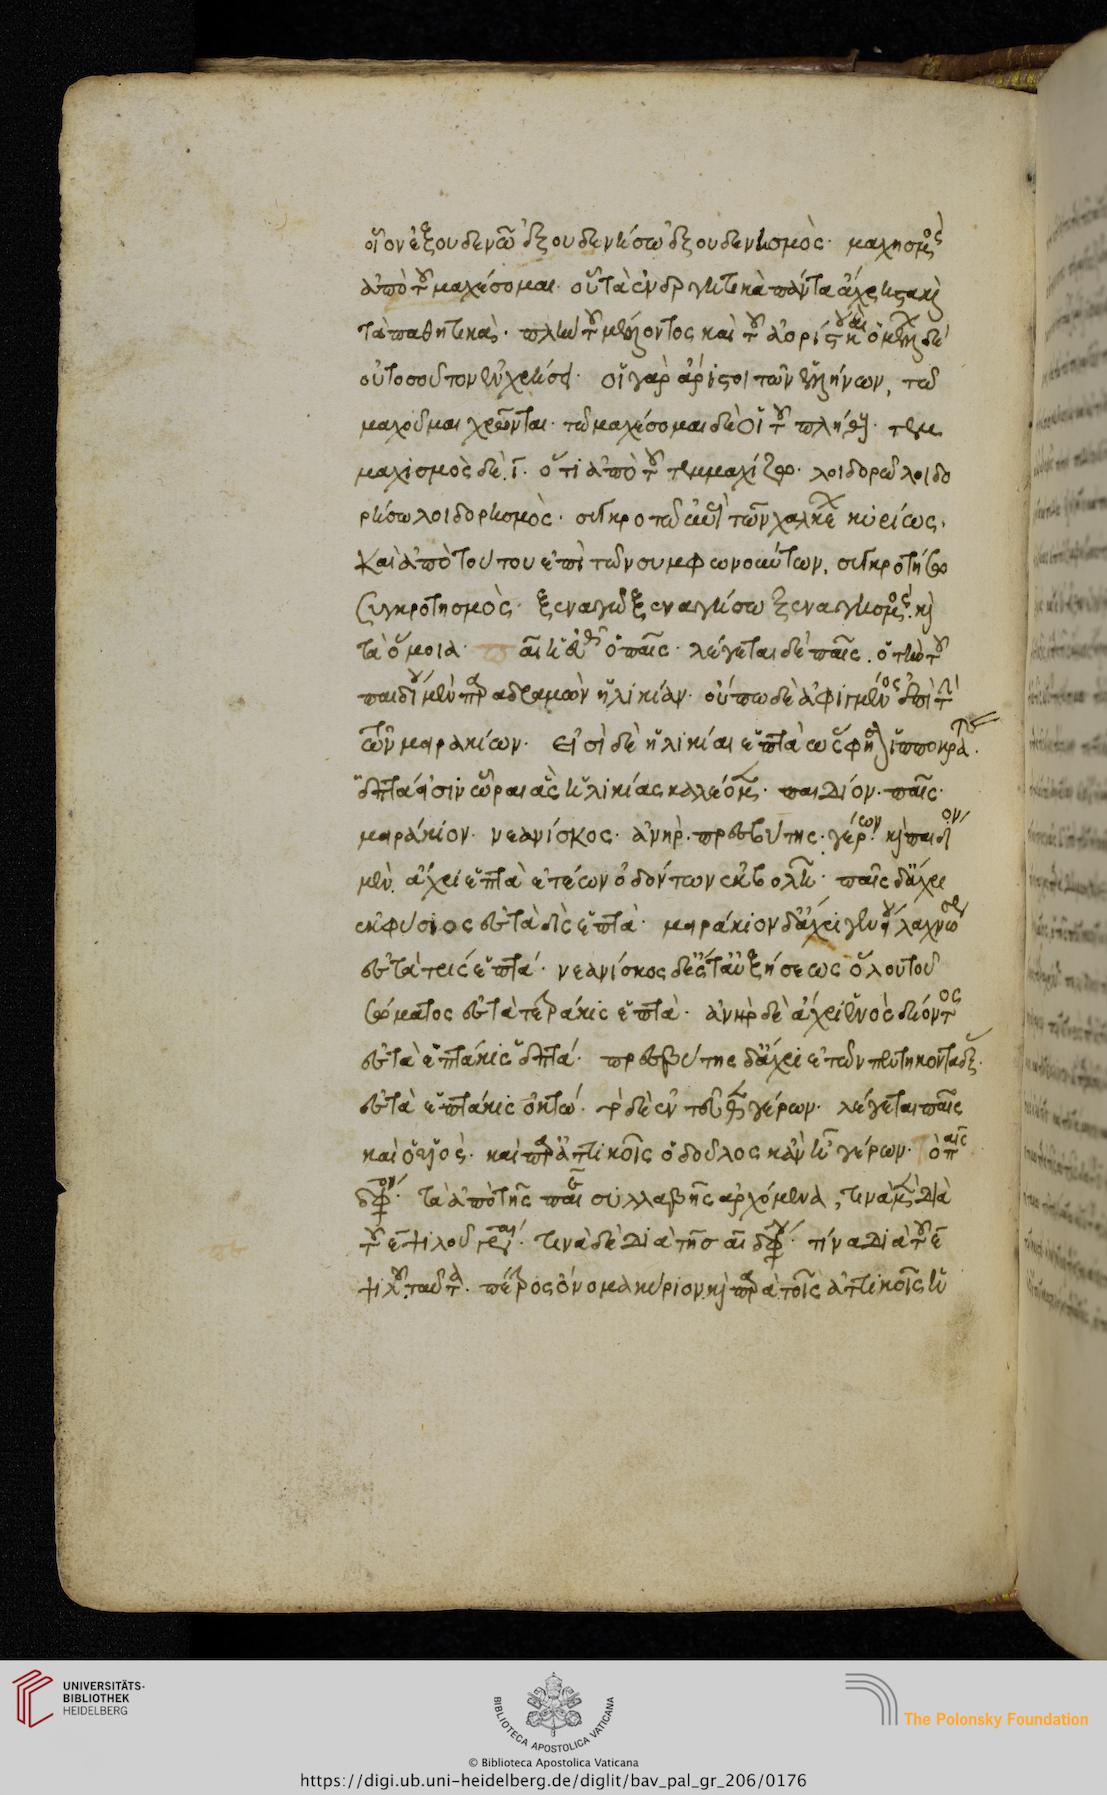 οἷον ἐξουδενῶ ἐξουδενήσω ἐξουδενησμὸς· μαχησμὸς
ἀπὸ τοῦ μαχέσομαι· οὐ τὰ ἐνεργητικὰ πάντα
τὰ παθητικὰς· πλὴν τοῦ μέλλοντος καὶ τοῦ ἀορίστου ὁ μέλλων δὲ
οὗτος οὐ τὸν οἱ γὰρ ἄριστοι τῶν ἑλλήνων, τῶ
μαχοῦμαι χρῶνται· τῶ μαχέσομαι δὲ οἱ τοῦ πλήθους· τεμ
μαχισμὸς δὲ ϊ· ὅτι ἀπὸ τοῦ τεμμαχίζω· λοιδορῶ λοιδο
ρήσω λοιδορησμὸς· συγκροτῶ ἀντὶ τῶν χαλκέων κυρίως·
καὶ ἀπὸ τούτου ἐπὶ τῶν συμφωνούντων, συγκροτήσω
συγκροτησμὸς· ξεναγῶ ξεναγήσω ξεναγησμὸς· καὶ
τὰ ὅμοια· ὁ παῖς· λέγεται δὲ παῖς ὁ τὴν τοῦ
παιδίου μὲν παραδραμὼν ἡλικίαν· οὔπω δὲ ἀφιγμένος ἐπὶ τὴν
τῶν μειρακίων· εἰσὶ δὲ ἡλικίαι ἑπτὰ ὥς φησιν ἱπποκράτης·
ἑπτά εἰσιν ὧραι ἃς ἡλικίας καλέομεν· παιδίον· παῖς·
μειράκιον· νεανίσκος· ἀνὴρ· πρεσβύτης· γέρων· καὶ παιδίον
μὲν ἄχρι ἑπτὰ ἐτέων ὀδόντων ἐκβολῆς· παῖς δἄχρι
ἐκφύσιος ἐς τὰ δὶς ἑπτὰ· μειράκιον δἄχρι γενείου λαχνώσεως
ἐς τὰ τρὶς ἑπτά· νεανίσκος δἐς τ' αὐξήσεως ὅλου τοῦ
σώματος ἐς τὰ τετράκις ἑπτὰ· ἀνὴρ δὲ ἄχρι ἑνὸς δέοντος
ἐς τὰ ἑπτάκις ἑπτά· πρεσβύτης δἄχρι ἐτῶν πεντήκοντα ἓξ·
ἐς τὰ ἑπτάκις ὀκτώ· τὸ δὲ ἐντεῦθεν γέρων· λέγεται παῖς
καὶ ὁ υἱὸς· καὶ παρὰ ἀττικοῖς ὁ δοῦλος κἂν ᾖ γέρων· ὁ παῖς
δίφθογγον· τὰ ἀπὸ τῆς παι συλλαβῆς ἀρχόμενα, τινὰ μὲν διὰ
τοῦ ε ψιλοῦ γράφεται· τινὰ δὲ διὰ τῆς αι διφθόγγου· τίνα διὰ τοῦ ε
ψιλοῦ· ταῦτα· πέτρος ὄνομα κύριον καὶ παρὰ τοῖς ἀττικοῖς ἡ
UNIVERSITÄTS-
BIBLIOTHEK
HEIDELBERG
BIBLIOTECA APOSTOLICA VATICANA
The Polonsky Foundation
© Biblioteca Apostolica Vaticana
https://digi.ub.uni-heidelberg.de/diglit/bav_pal_gr_206/0176